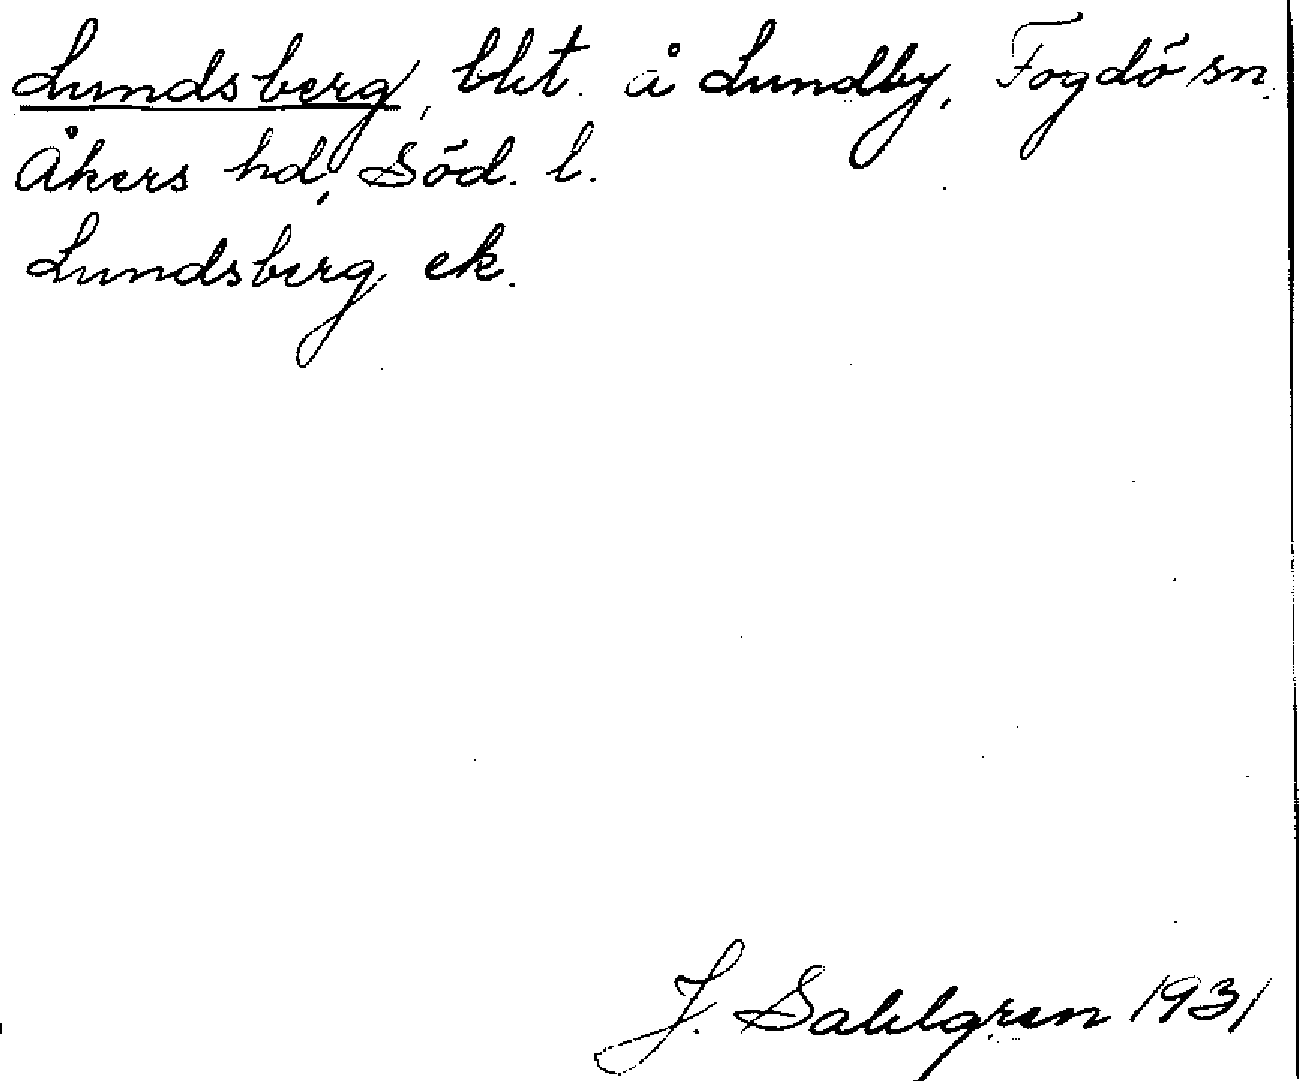 Lundsberg, bkt. å Lundby, Fogdö sn.
Åkers hd, Söd. l.
Lundsberg ek.
J. Sahlgren 1931